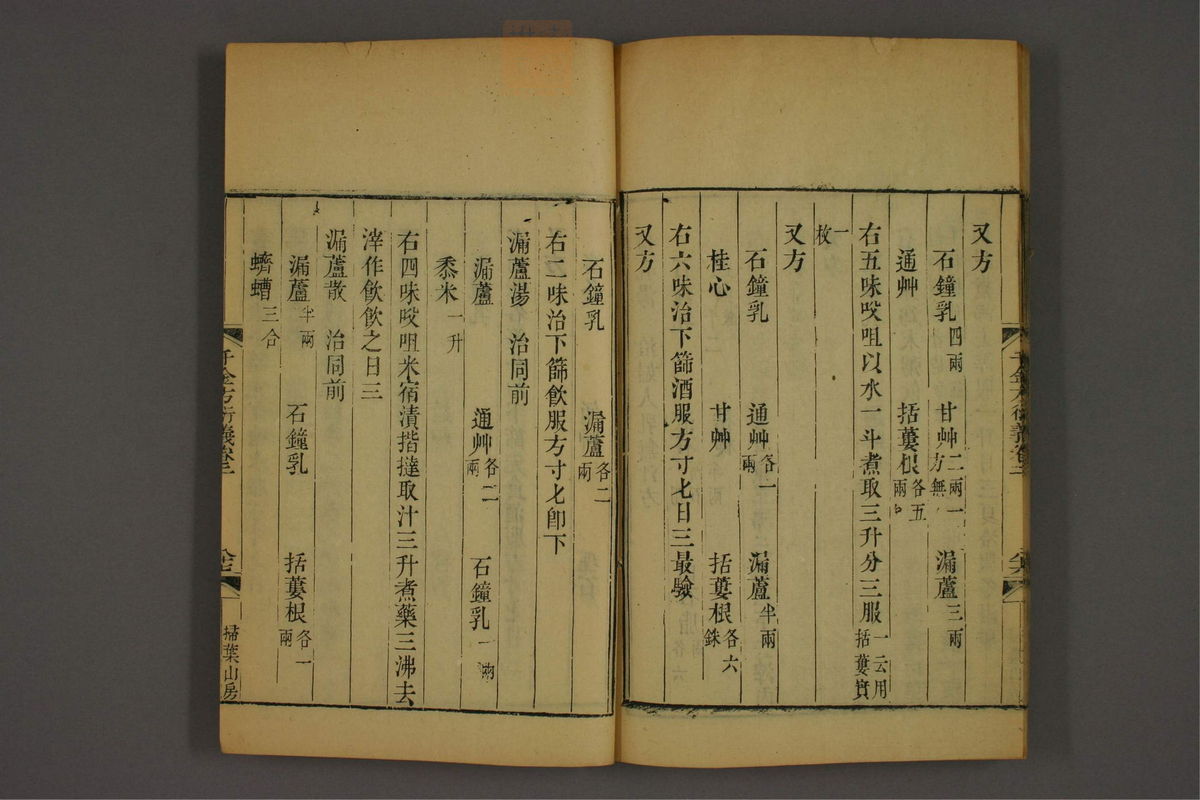 又方
石鐘乳四兩 甘艸二兩一方無 漏蘆三兩
通艸 括蔞根各五兩
右五味㕮咀以水一斗煮取三升分三服一云用括蔞實
一枚
又方
石鐘乳 通艸各一兩 漏蘆半兩
桂心 甘艸 括蔞根各六銖
右六味治下篩酒服方寸匕日三最驗
又方
石鐘乳 漏蘆各二兩
右二味治下篩飲服方寸匕卽下
漏蘆湯 治同前
漏蘆 通艸各二兩 石鐘乳一兩
黍米一升
右四味㕮咀米宿漬揩撻取汁三升煮藥三沸去
滓作飲飲之日三
漏蘆散 治同前
漏蘆半兩 石鐘乳 括蔞根各一兩
蠐螬三合
千金方衍義卷二
掃葉山房